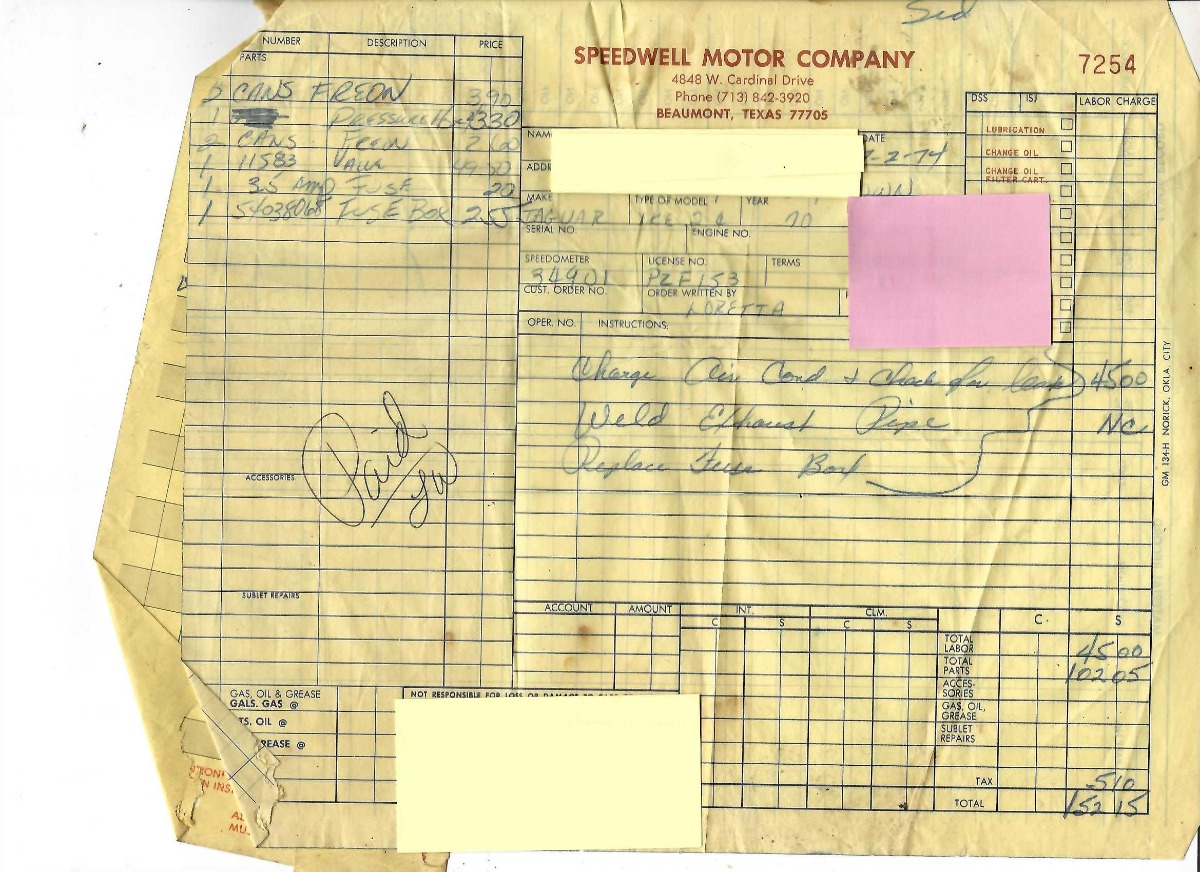 Sed
SPEEDWELL MOTOR COMPANY
4848 W. Cardinal Drive
Phone (713) 842-3920
BEAUMONT, TEXAS 77705
7254
NUMBER DESCRIPTION PRICE
PARTS
2 CANS FREON 3.90
1 PRESSURE
2 CANS FREON
1 11583
1 35 AMP FUSE 20
1 FUSE BOX 255
ACCESSORIES
Paid
SUBLET REPAIRS
GAS, OIL & GREASE
GALS. GAS @
TS. OIL @
REASE @
NAM
DATE
-2-74
ADDR
MAKE TYPE OR MODEL YEAR
JAGUAR 70
SERIAL NO. ENGINE NO.
SPEEDOMETER LICENSE NO. TERMS
34901 PZF153
CUST. ORDER NO. ORDER WRITTEN BY
LORETTA
OPER. NO. INSTRUCTIONS:
DSS ISJ LABOR CHARGE
LUBRICATION
CHANGE OIL
CHANGE OIL
FILTER CART.
Charge Air Cond + Check for 4500
Weld Exhaust Pipe NC
Replace Fuse Box
GM 134-H NORICK, OKLA. CITY
ACCOUNT AMOUNT INT. CLM.
C S C S C S
TOTAL LABOR 4500
TOTAL PARTS 10205
ACCES-SORIES
GAS, OIL, GREASE
SUBLET REPAIRS
TAX 510
TOTAL 15215
NOT RESPONSIBLE FOR LOSS OR DAMAGE TO